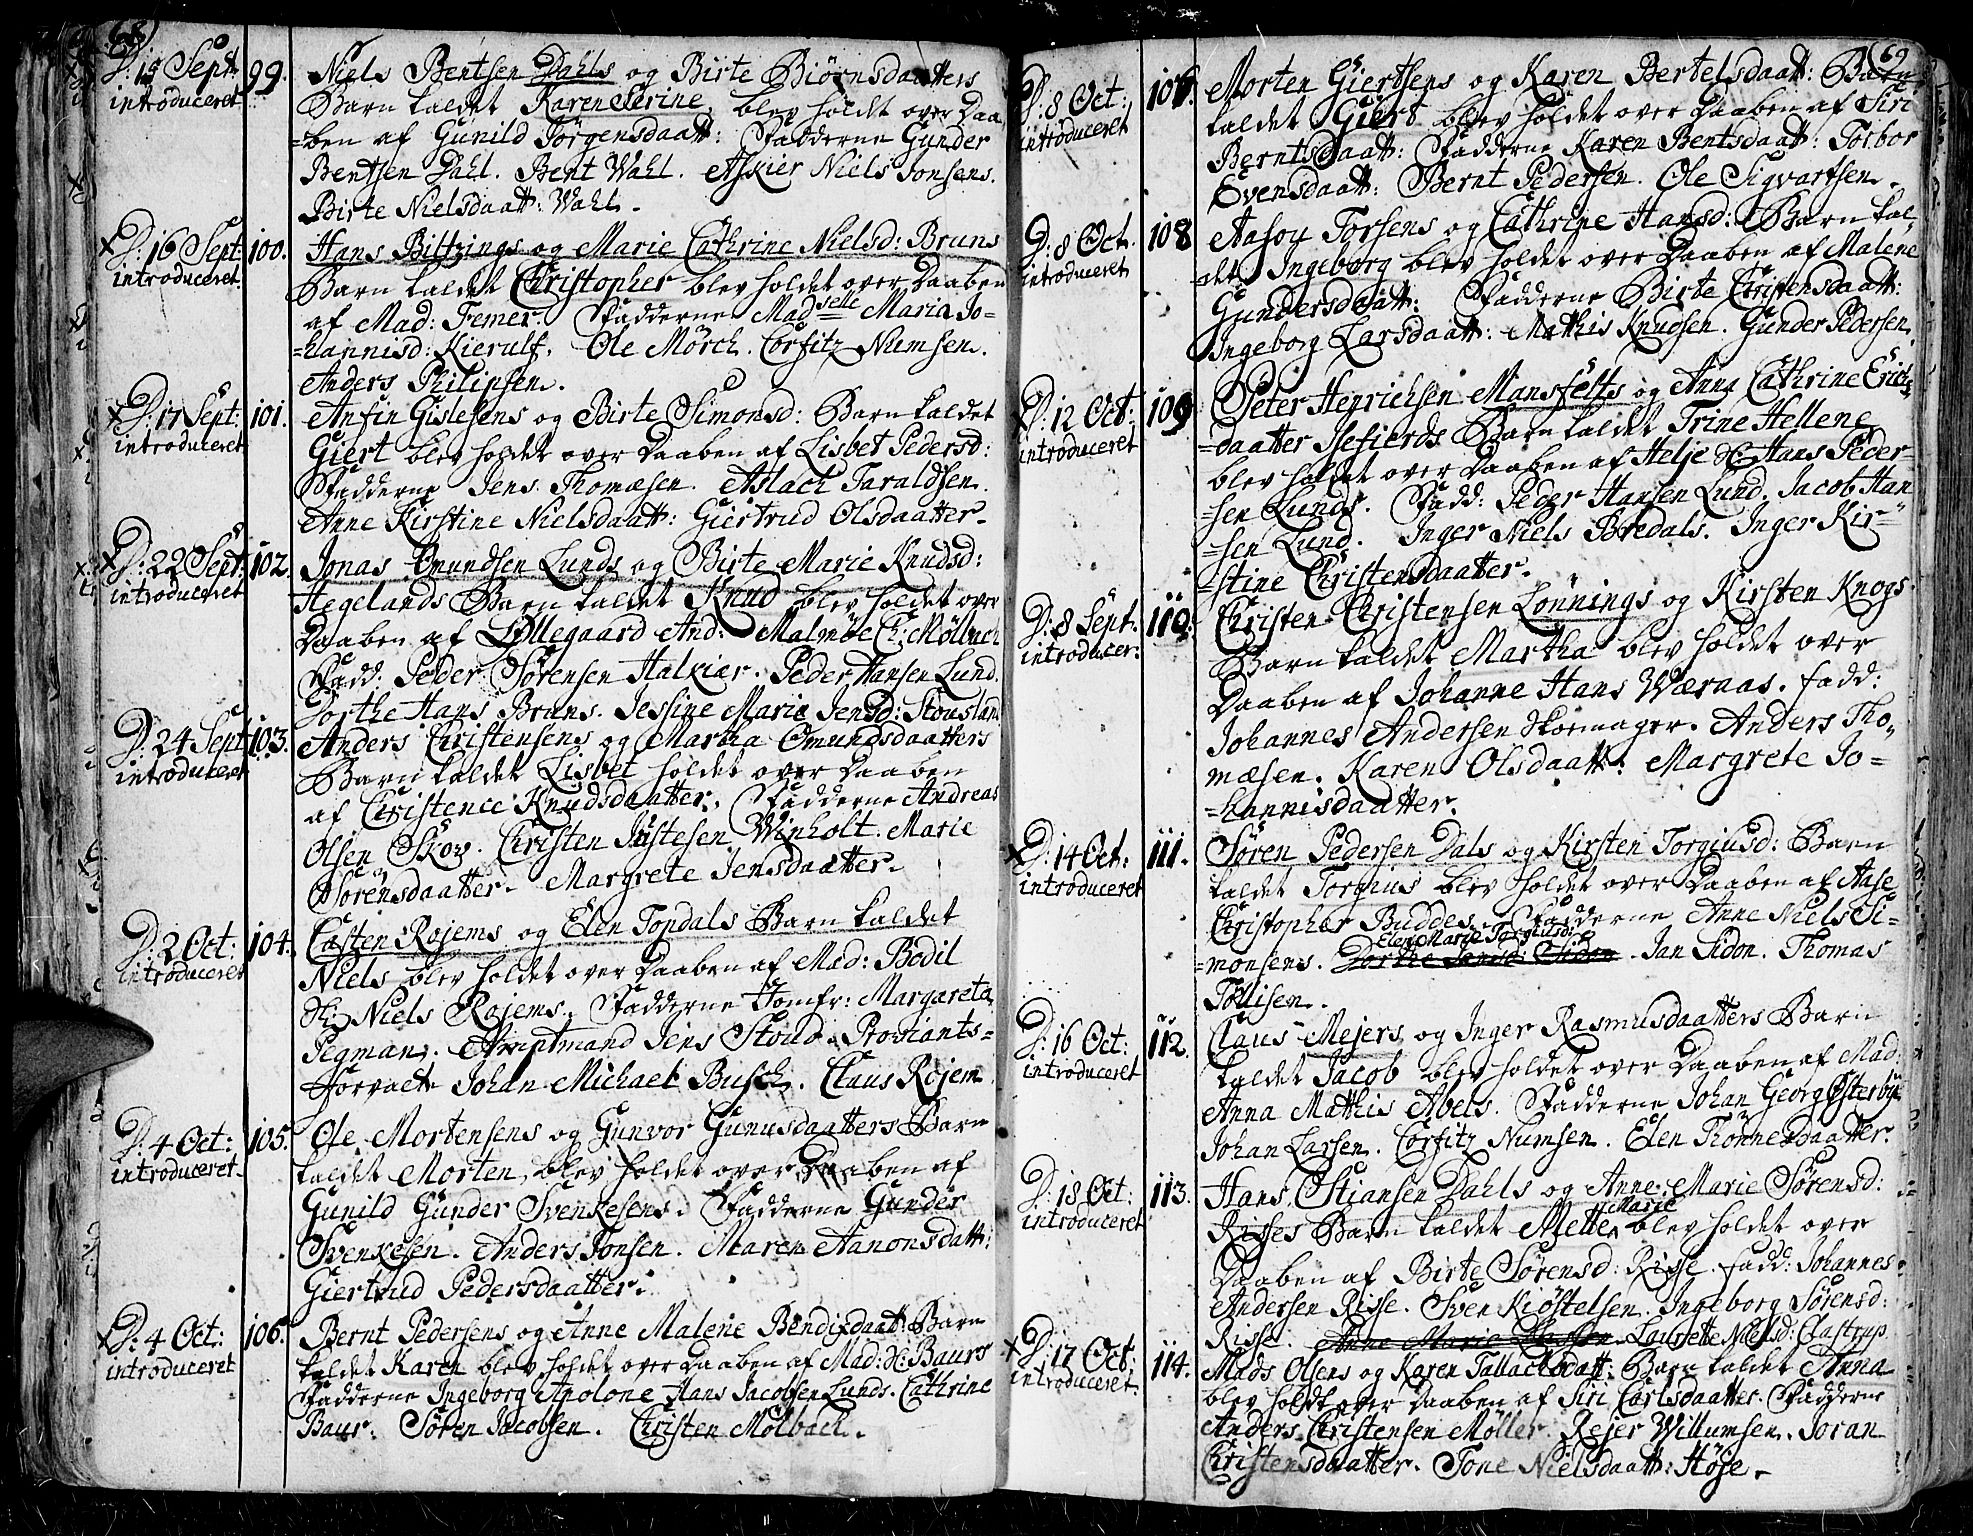 68)
D: 15 Sept: 99. Niels Bentsen Dahls og Birte Biörnsdaatters
introduceret Barn kaldet Karen Serine, blev holdt over Daa
=ben af Gunild Jörgensdaatt: Fadderne Gunder
Bentsen Dahl. Bent Wahl. Askier Niels Jonsens.
Birte Nielsdaatt: Wahl.
D: 16 Sept: 100. Hans Biltzings og Marie Cathrine Nielsd: Bruns
introduceret Barn kaldet Christopher blev holdet over Daaben
af Mad: Femer. Fadderne Madselle Maria Jo=
=hannisd: Kierulf. Ole Mörch. Corfitz Numsen.
Anders Philipsen.
D: 17 Sept: 101. Anfin Gislesens og Birte Simonsd: Barn kaldet
introduceret Giert blev holdet over Daaben af Lisbet Pedersd:
Fadderne Jens Thomæsen. Aslach Taraldsen.
Anne Kirstine Nielsdaatt: Giertrud Olsdaatter.
D: 22 Sept: 102 Jonas Omundsen Lunds og Birte Marie Knudsd:
introduceret Hegelands Barn kaldet Knud blev holdet over
Daaben af Lyllegaard And: Malmöe Ch: Mölbach
Fadd: Peder Sörensen Halkier. Peder Hansen Lund.
Dorthe Hans Bruns. Jessine Marie Jensd: Stousland
D: 24 Sept 103. Anders Christensens og Martha Omundsdaatters
introduceret Barn kaldet Lisbet holdet over Daaben
af Christence Knudsdaatter. Fadderne Andreas
Olsen Skov. Christen Justesen Winholt. Marie
Sörensdaatter. Margrete Jensdaatter.
D: 2 Oct: 104. Casten Rojems og Elen Topdals Barn kaldet
introduceret Niels blev holdet over Daaben af Mad: Bodil
Sl: Niels Rojems. Fadderne Jomfr: Margareta
Pegman. Amptmand Jens Stoud. Proviants=
Forvalt: Johan Michael Busch. Claus Rojem
D: 4 Oct: 105. Ole Mortensens og Gunvor Gunusdaatters Barn
introduceret. kaldet Morten, blev holdet over Daaben af
Gunild Gunder Svenkesens. Fadderne Gunder
Svenkesen. Anders Jonsen. Maren Aanonsdatt:
Giertrud Pedersdaatter.
D: 4 Oct: 106. Bernt Pedersens og Anne Malene Bendixdaatt: Barn
introduceret kaldet Karen blev holdet over Daaben af Mad: Sl: Baurs
Fadderne Ingeborg Apolone Hans Jacobsen Lunds. Cathrine
Baur. Sören Jacobsen. Christen Mölbach.
69
D: 8 Oct: 107. Morten Giertsens og Karen Bertelsdaat: Barn
introduceret kaldet Giert blev holdet over Daaben af Siri
Berntsdaatt: Fadderne Karen Bentsdaatt: Torbor
Evensdaatt: Bernt Pedersen. Ole Sigvartsen.
D: 8 Oct. 108 Aasoy Torsens og Cathrine Hansd: Barn kal=
introduceret =det Ingeborg blev holdet over Daaben af Malene
Gundersdaatt: Fadderne Birte Christensdaatt:
Ingeborg Larsdaatt: Mathis Knudsen. Gunder Pedersen.
D: 12 Oct: 109 Peter Henrichsen Mansfelts og Anna Cathrine Erics
introduceret =daatter Isefierds Barn kaldet Trine Hellene
blev holdet over Daaben af Helje Sl: Hans Peder=
=sen Lunds. Fadd: Peder Hansen Lund. Jacob Han
=sen Lund. Inger Niels Bredals. Inger Kir=
=stine Christensdaatter.
D: 8 Sept: 110. Christen Christensen Lönnings og Kirsten Knogs
introducer: Barn kaldet Martha blev holdet over
Daaben af Johanne Hans Wæraas. Fadd:
Johannes Andersen Skoemager. Anders Tho=
mæsen. Karen Olsdaatt: Margrete Jo=
=hannisdaatter.
D: 14 Oct: 111. Sören Pedersen Dals og Kirsten Torgiusd: Barn
introduceret kaldet Torgius blev holdet over Daaben af Aase
Christopher Buddes. Fadderne Anne Niels Si=
Elen Marie Torgiusd:
=monsens. Dorthe Jansd: Sidon. Jan Sidon. Thomas
Tönisen.
D: 16 Oct: 112. Claus Mejers og Inger Rasmusdaatters Barn
introduceret kaldet Jacob blev holdet over Daaben af Mad:
Anna Mathis Abels. Fadderne Johan Georg Österbye
Johan Larsen. Corfitz Numsen. Elen Thönnesdaatter.
D: 18 Oct: 113. Hans Stiansen Dahls og Anne Marie Sörensd:
introduceret Risses Barn kaldet Mette Marie blev holdet over
Daaben af Birte Sörensd: Risse. Fadd: Johannes
Andersen Risse. Sven Kiöstelsen. Ingeborg Sörensd:
Risse. Anne Marie Laurette Nielsd: Clastrup
D: 17 Oct: 114. Mads Olsens og Karen Tallachsdaatt: Barn kaldet Anna
introduceret. blev holdt over Daaben af Siri Carlsdaatter. Fadderne
Anders Christensen Möller. Rejer Willumsen. Joran
Christensdaatter. Tone Nielsdaatt: Höje.